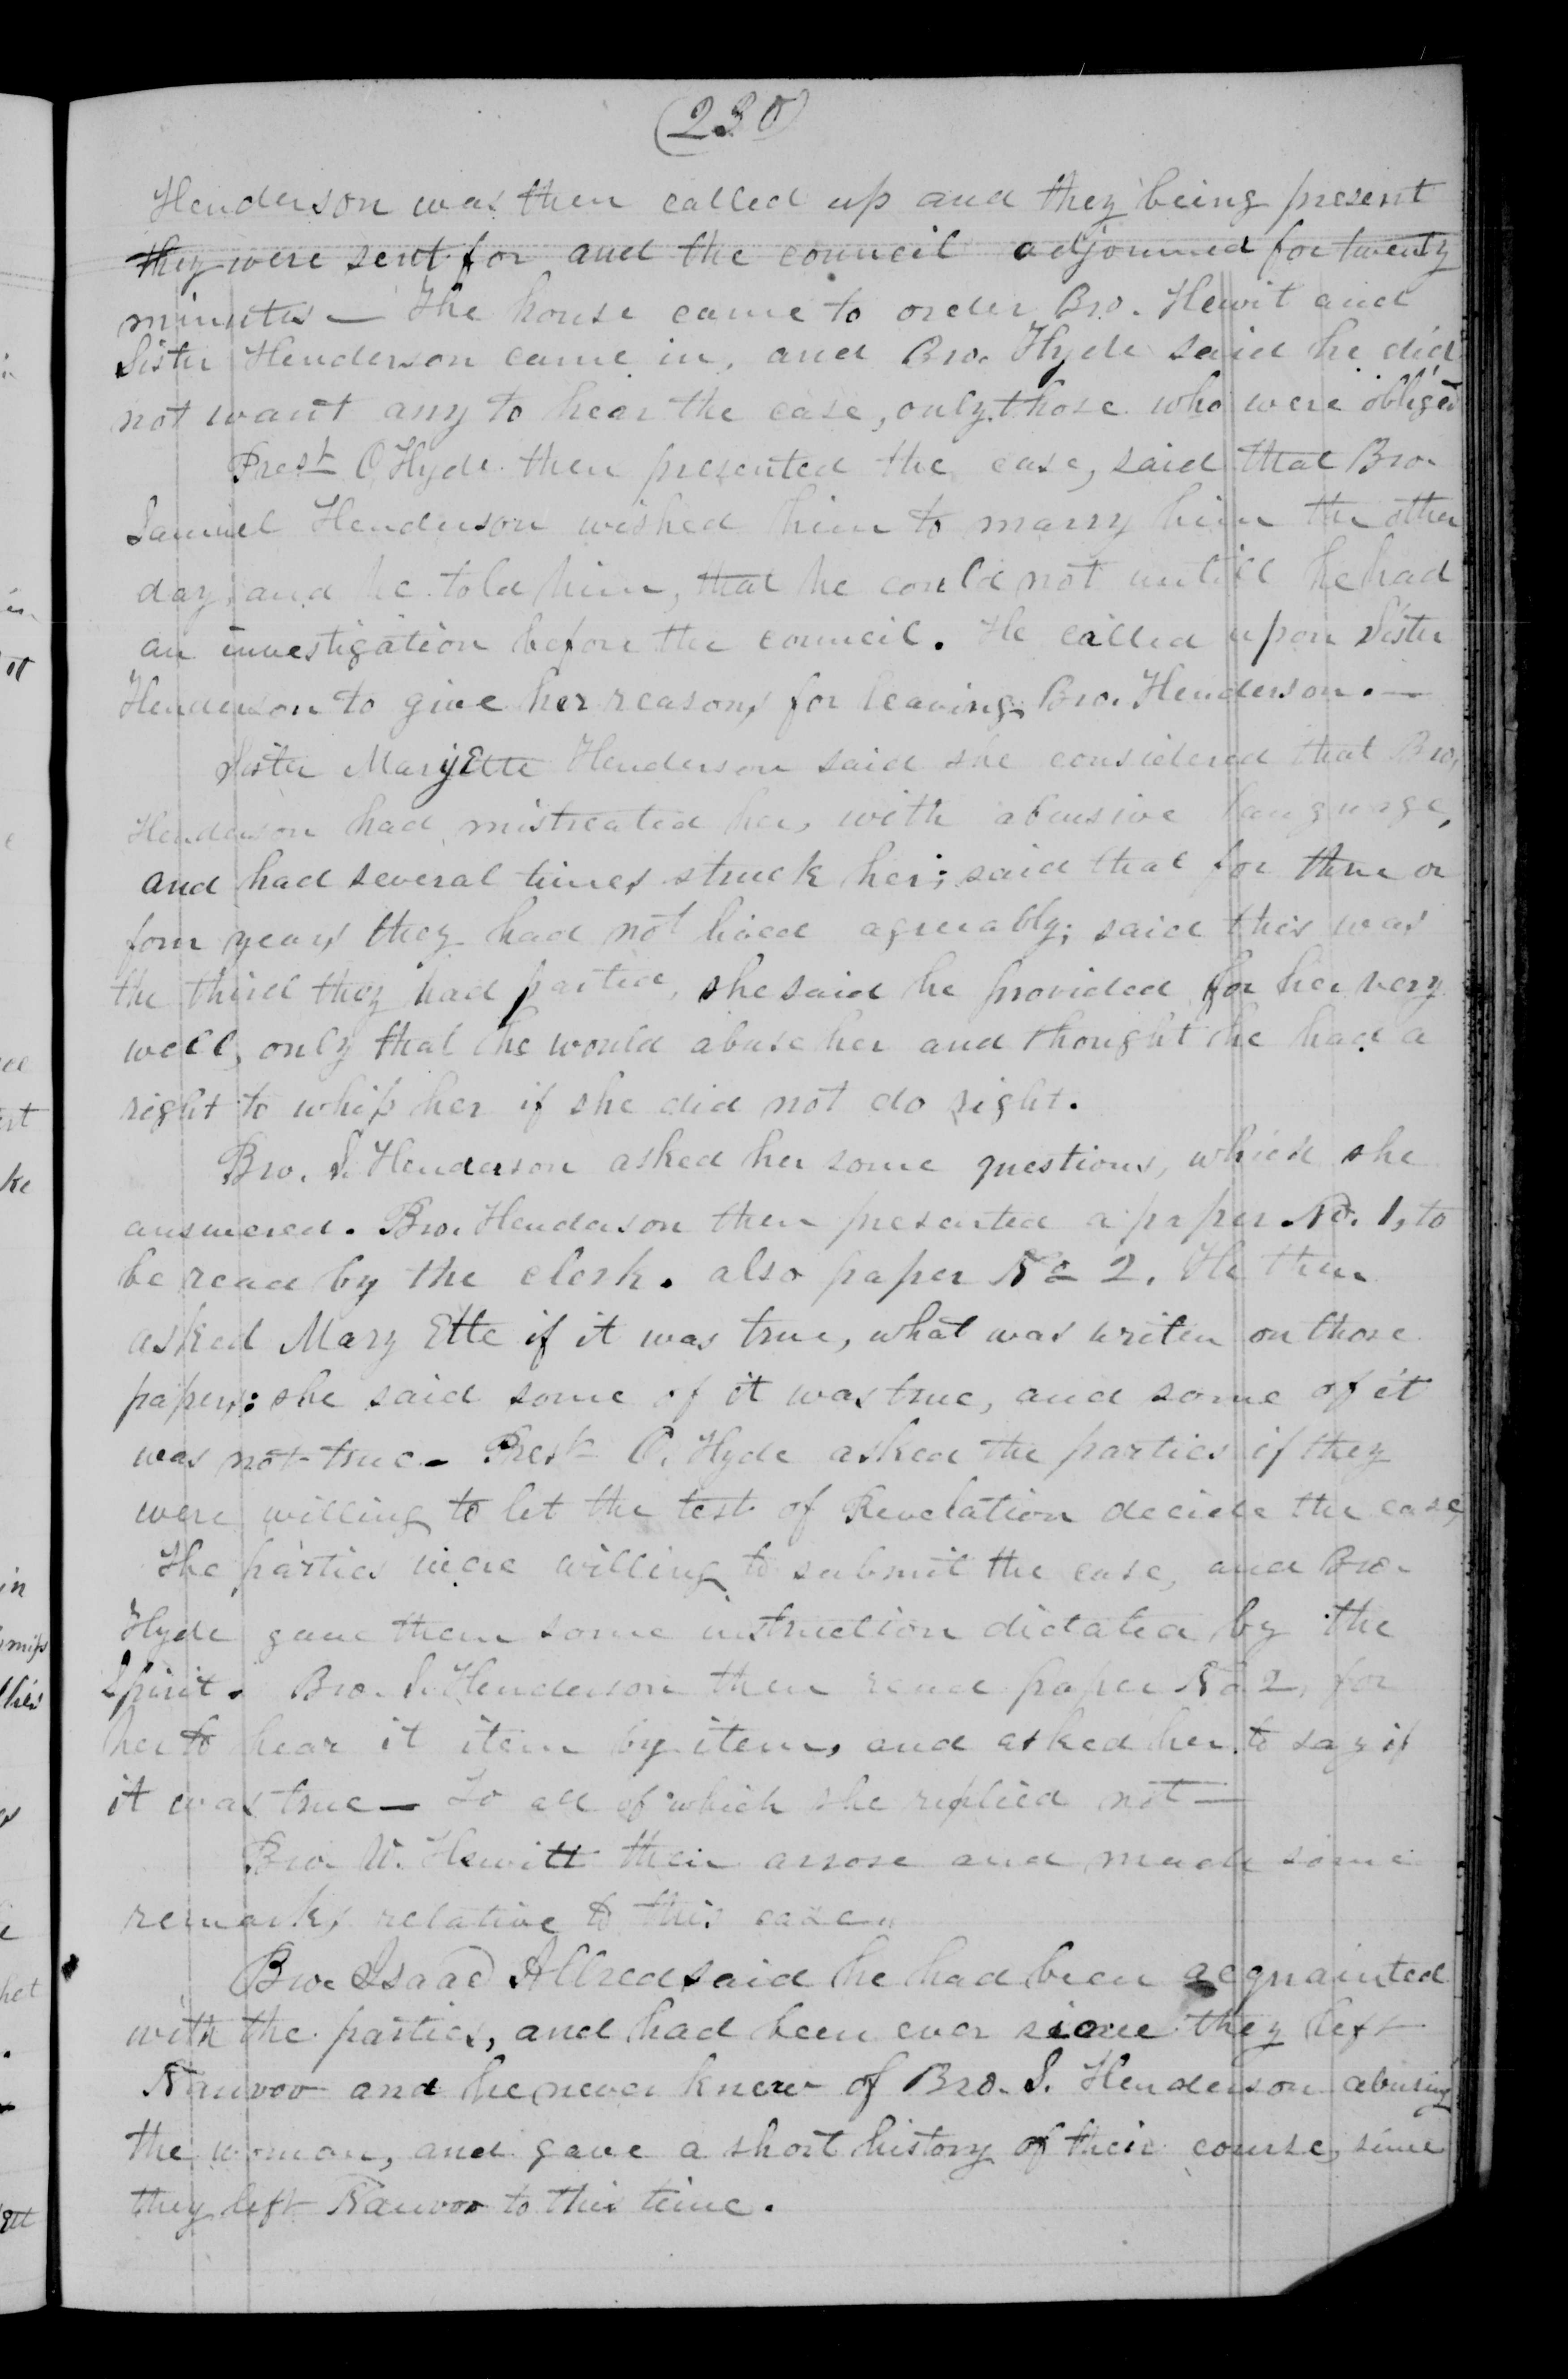 (230)
Henderson was then called up and they being present
they were sent for and the council adjourned for twenty
minutes — The house came to order Bro. Hewit and
Sister Henderson came in, and Bro. Hyde said he did
not want any to hear the case, only those who were obliged
Prest O. Hyde then presented the case, said that Bro.
Samuel Henderson wished him to marry him the other
day and he told him, that he could not untill he had
an investigation before the council. He called upon Sister
Henderson to give her reasons for leaving Bro. Henderson. —
Sister MaryEtte Henderson said she considered that Bro.
Henderson had mistreated her, with abusive language,
and had several times struck her; said that for three or
four years they had not lived agreeably; said this was
the third they had parted, she said he provided for her very
well, only that he would abuse her and thought he had a
right to whip her if she did not do right.
Bro. S. Henderson asked her some questions, which she
answered. Bro. Henderson then presented a paper No. 1, to
be read by the clerk. also paper No 2. He then
asked Mary Ette if it was true, what was writen on those
papers: she said some of it was true, and some of it
was not true. Prest O. Hyde asked the parties if they
were willing to let the test of Revelation decide the case,
The parties were willing to submit the case, and Bro.
Hyde gave them some instruction dictated by the
Spirit. Bro. S. Henderson then read paper No 2, for
her to hear it item by item, and asked her to say if
it was true — To all of which she replied not —
Bro. W. Hewitt then arrose and made some
remarks relative to this case.
Bro. Isaac Allred said he had been acquainted
with the parties, and had been ever since they left
Nauvoo and he never knew of Bro. S. Henderson abusing
the woman, and gave a short history of their course, since
they left Nauvoo to this time.